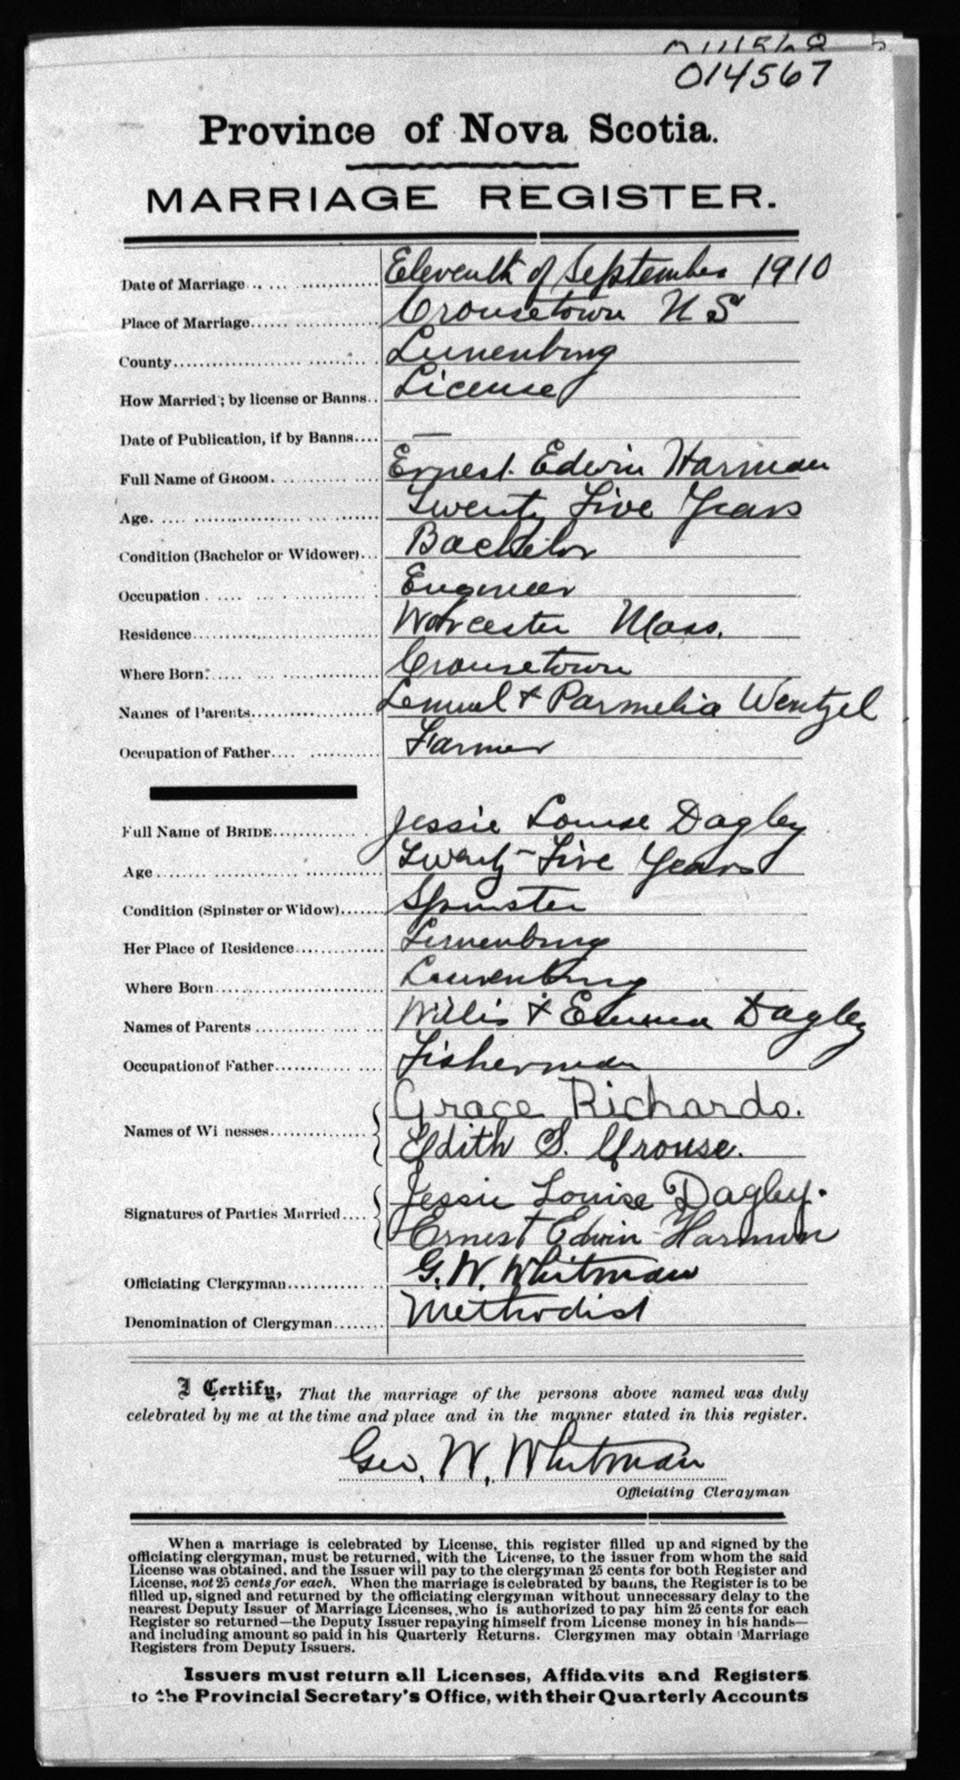 014567
Province of Nova Scotia.
MARRIAGE REGISTER.
Date of Marriage Eleventh of September 1910
Place of Marriage Crousetown N S
County Lunenburg
How Married; by license or Banns License
Date of Publication, if by Banns —
Full Name of GROOM. Ernest Edwin Harman
Age. Twenty Five Years
Condition (Bachelor or Widower) Bachelor
Occupation Engineer
Residence Worcester Mass.
Where Born. Crousetown
Names of Parents Lemuel & Parmelia Wentzel
Occupation of Father Farmer
Full Name of BRIDE Jessie Louise Dagley
Age Twenty-Five Years
Condition (Spinster or Widow) Spinster
Her Place of Residence Lunenburg
Where Born Lunenburg
Names of Parents Willis & Emma Dagley
Occupation of Father Fisherman
Names of Wi nesses Grace Richards.
Edith S. Crouse.
Signatures of Parties Married Jessie Louise Dagley.
Ernest Edwin Harmon
Officiating Clergyman G. W. Whitman
Denomination of Clergyman Methodist
I Certify, That the marriage of the persons above named was duly
celebrated by me at the time and place and in the manner stated in this register.
Geo. W. Whitman
Officiating Clergyman
When a marriage is celebrated by License, this register filled up and signed by the
officiating clergyman, must be returned, with the License, to the issuer from whom the said
License was obtained, and the Issuer will pay to the clergyman 25 cents for both Register and
License, not 25 cents for each. When the marriage is celebrated by banns, the Register is to be
filled up, signed and returned by the officiating clergyman without unnecessary delay to the
nearest Deputy Issuer of Marriage Licenses, who is authorized to pay him 25 cents for each
Register so returned—the Deputy Issuer repaying himself from License money in his hands—
and including amount so paid in his Quarterly Returns. Clergymen may obtain Marriage
Registers from Deputy Issuers.
Issuers must return all Licenses, Affidavits and Registers
to the Provincial Secretary's Office, with their Quarterly Accounts